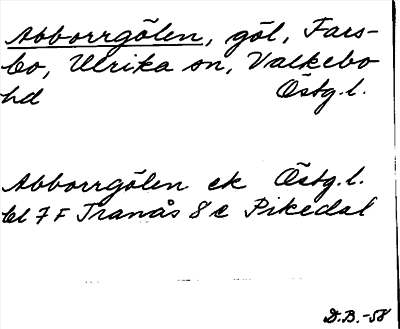 Abborrgölen, göl, Fars-
bo, Ulrika sn, Valkebo
hd Östg.l.
Abborrgölen ek Östg.l.
bl 7 F Tranås 8 c Pikedal
D.B.-58